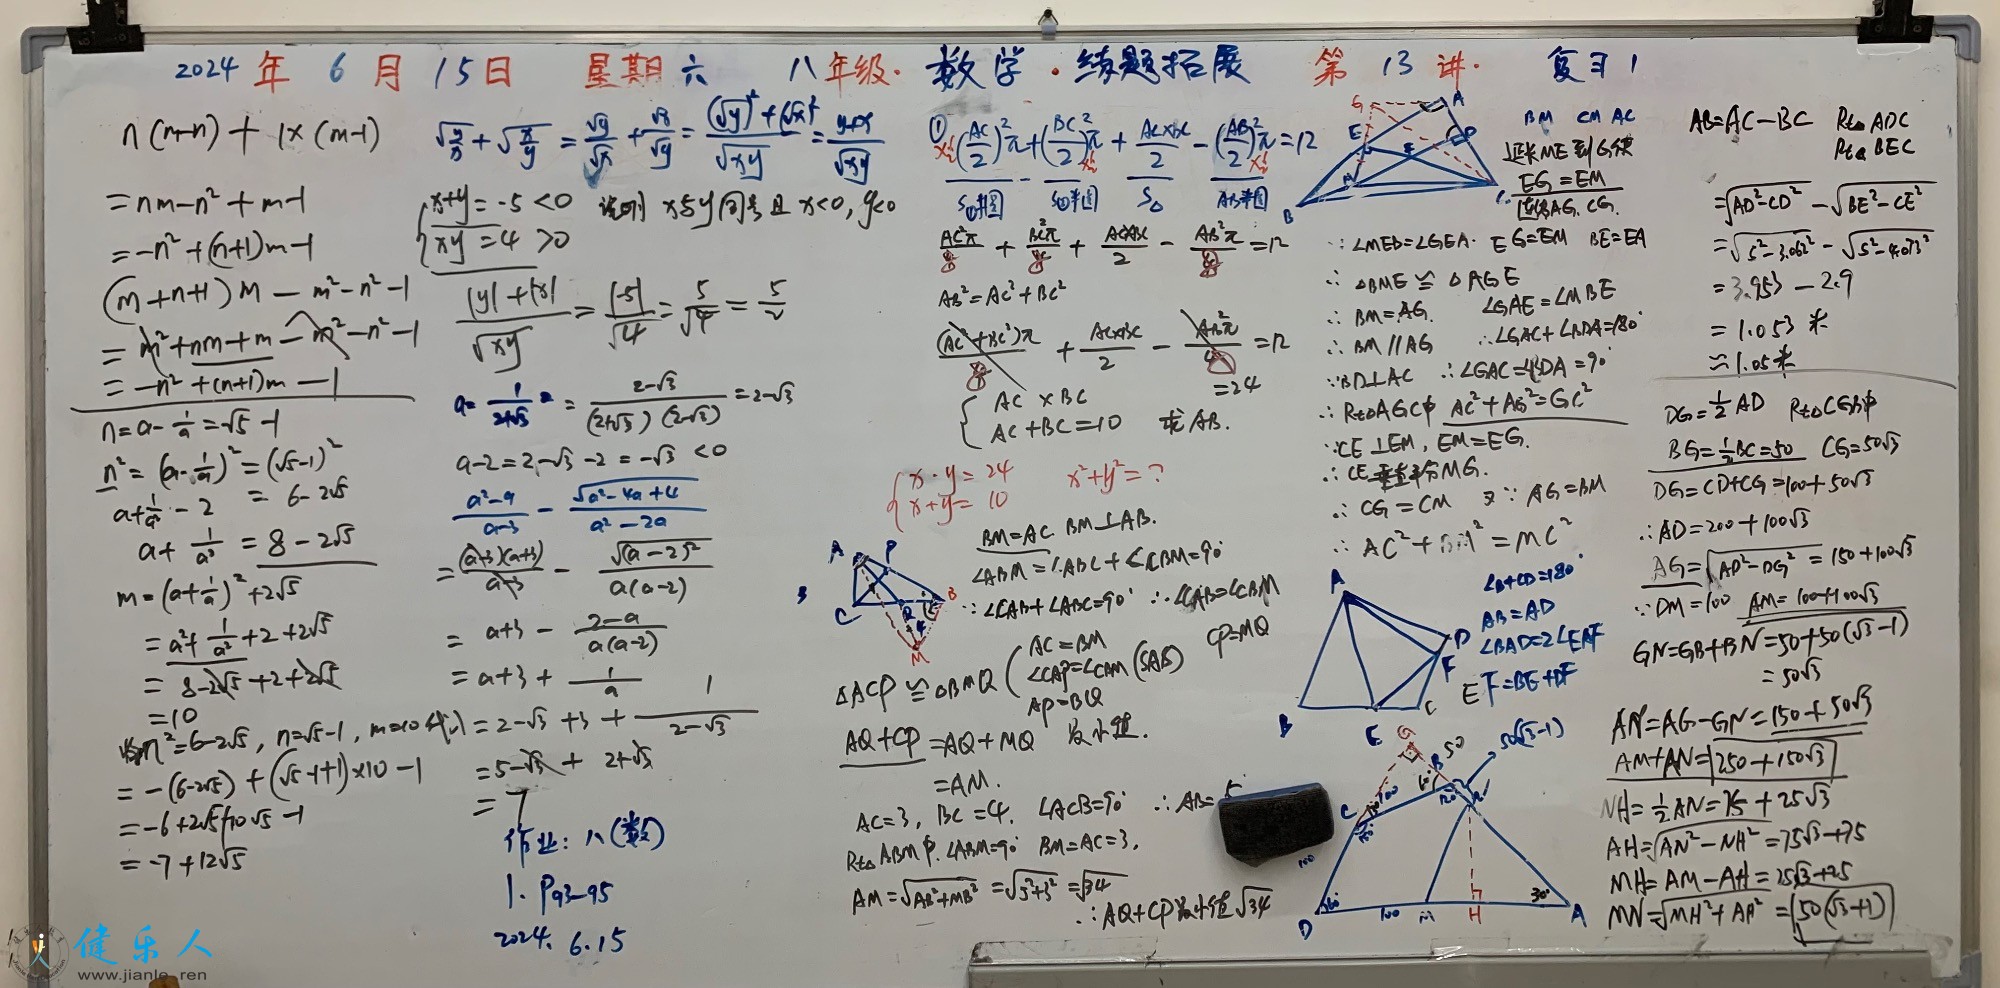 2024年6月15日 星期六 八年级·数学·练题拓展 第13讲· 复习1
n(m-n)+1×(m-1)
=nm-n²+m-1
=-n²+(n+1)m-1
(m+n+1)m-m²-n²-1
=m²+nm+m-m²-n²-1
=-n²+(n+1)m-1
n=a-1/a=√5-1
n²=(a-1/a)²=(√5-1)²
=6-2√5
m=(a+1/a)²+2√5
=a²+1/a²+2+2√5
=8-2√5+2+2√5
=10
n²=6-2√5, n=√5-1, m=10
=-(6-2√5)+(√5-1+1)×10-1
=-6+2√5+10√5-1
=-7+12√5
√(y/x)+√(x/y)=√y/√x+√x/√y=((√y)²+(√x)²)/√xy=(y+x)/√xy
x+y=-5<0 说明x与y同号且x<0,y<0
xy=4>0
(|y|+|x|)/√xy=|-5|/√4=5/√4=5/2
a=1/(2+√3)=(2-√3)/((2+√3)(2-√3))=2-√3
a-2=2-√3-2=-√3<0
(a²-9)/(a-3)-√(a²-4a+4)/(a²-2a)
=(a-3)(a+3)/(a-3)-√(a-2)²/(a(a-2))
=a+3-(2-a)/(a(a-2))
=a+3+1/a
=2-√3+3+1/(2-√3)
=5-√3+2+√3
=7
作业: 八(数)
1. P93-95
2024.6.15
① (AC/2)²π×½+(BC/2)²π×½+AC×BC/2-(AB/2)²π×½=12
S①半圆 S②半圆 S△ AB半圆
AC²π/8+BC²π/8+AC×BC/2-AB²π/8=12
AB²=AC²+BC²
(AC²+BC²)π/8+AC×BC/2-AB²π/8=12
AC×BC=24
AC+BC=10 求AB.
x·y=24 x²+y²=?
x+y=10
A P C B M
BM=AC BM⊥AB.
∠ABM=∠ABC+∠CBM=90°
∵∠CAB+∠ABC=90° ∴∠CAB=∠CBM
△ACP≌△BMQ
AC=BM
∠CAP=∠CBM (SAS) CP=MQ
AP=BQ
AQ+CP=AQ+MQ 最小值.
=AM.
AC=3, BC=4. ∠ACB=90° ∴AB=5
Rt△ABM中.∠ABM=90° BM=AC=3,
AM=√(AB²+MB²)=√(5²+3²)=√34
∴AQ+CP最小值√34
G A E D F M B C
BM CM AC
延长ME到G使
EG=EM
连接AG.CG.
∵∠MEB=∠GEA. EG=EM BE=EA
∴△BME≌△AGE
∴BM=AG. ∠GAE=∠MBE
∴BM∥AG ∴∠GAC+∠BDA=180°
∵BD⊥AC ∴∠GAC=∠BDA=90°
∴Rt△AGC中 AC²+AG²=GC²
∵CE⊥EM, EM=EG.
∴CE垂直平分MG.
∴CG=CM 又∵AG=BM
∴AC²+BM²=MC²
A B E C F D
∠B+∠D=180°
AB=AD
∠BAD=2∠EAF
EF=BE+DF
G 50 50(√3-1) B N C 100 60° D 100 M H 30° A
AB=AC-BC Rt△ADC
Rt△BEC
=√(AD²-CD²)-√(BE²-CE²)
=√(5²-3.062²)-√(5²-4.073²)
=3.953-2.9
=1.053米
≈1.05米
DG=½AD Rt△CGB中
BG=½BC=50 CG=50√3
DG=CD+CG=100+50√3
∴AD=200+100√3
AG=√(AD²-DG²)=150+100√3
∵DM=100 AM=100+100√3
GN=GB+BN=50+50(√3-1)
=50√3
AN=AG-GN=150+50√3
AM+AN=250+150√3
NH=½AN=75+25√3
AH=√(AN²-NH²)=75√3+75
MH=AM-AH=25√3+25
MN=√(MH²+AH²)=50(√3+1)
健乐人
www.jianle.ren